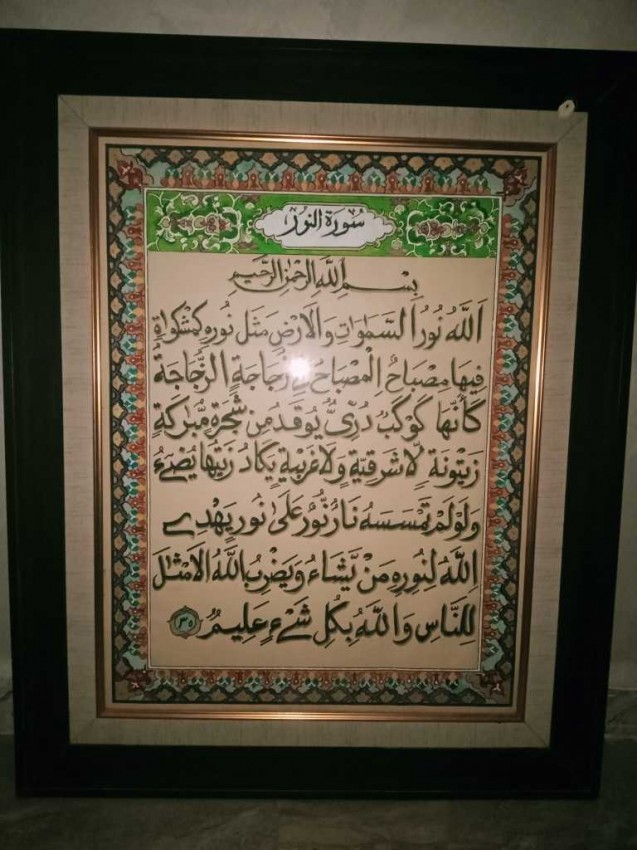 سورة النور
بِسْمِ اللهِ الرَّحْمٰنِ الرَّحِيمِ
اَللهُ نُورُ السَّمٰوَاتِ وَالْاَرْضِ مَثَلُ نُورِهِ كَمِشْكٰوةٍ
فِيهَا مِصْبَاحٌ اَلْمِصْبَاحُ فِي زُجَاجَةٍ اَلزُّجَاجَةُ
كَاَنَّهَا كَوْكَبٌ دُرِّيٌّ يُوقَدُ مِنْ شَجَرَةٍ مُّبٰرَكَةٍ
زَيْتُونَةٍ لَّا شَرْقِيَّةٍ وَلَا غَرْبِيَّةٍ يَكَادُ زَيْتُهَا يُضِيءُ
وَلَوْ لَمْ تَمْسَسْهُ نَارٌ نُّورٌ عَلَىٰ نُورٍ يَهْدِي
اللهُ لِنُورِهِ مَنْ يَّشَاءُ وَيَضْرِبُ اللهُ الْاَمْثٰلَ
لِلنَّاسِ وَاللهُ بِكُلِّ شَيْءٍ عَلِيمٌ ٣٥